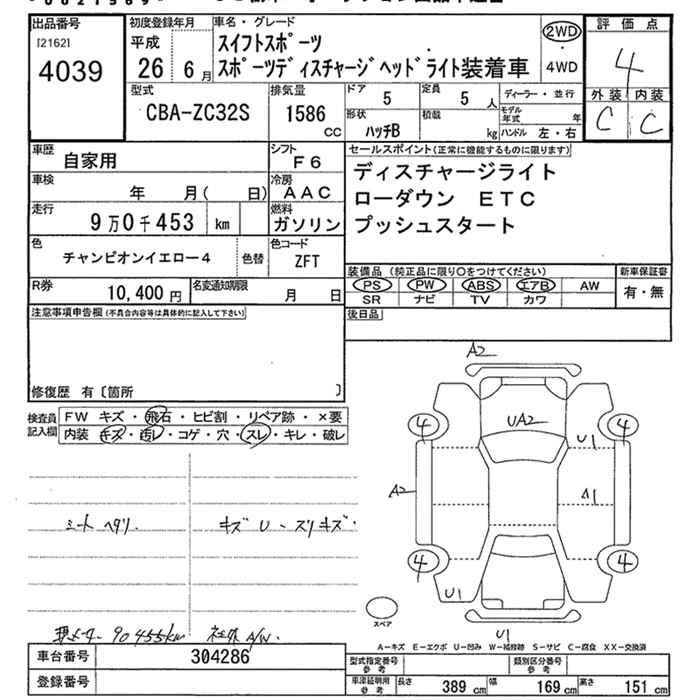 出品番号
[2162]
4039
初度登録年月
平成
26 6月
車名・グレード
スイフトスポーツ
スポーツディスチャージヘッドライト装着車
2WD
4WD
評価点
4
外装 内装
C C
型式
CBA-ZC32S
排気量
1586
CC
ドア
5
定員
5人
ディーラー・並行
形状
ハッチB
積載
kg
モデル年式 年
ハンドル 左・右
車歴
自家用
シフト
F6
車検
年 月( 日)
冷房
AAC
走行
9万0千453 km
燃料
ガソリン
色
チャンピオンイエロー4
色替
色コード
ZFT
R券
10,400円
名変通知期限
月 日
セールスポイント(正常に機能するものに限ります)
ディスチャージライト
ローダウン ETC
プッシュスタート
装備品(純正品に限り○をつけてください)
PS PW ABS エアB AW
SR ナビ TV カワ
新車保証書
有・無
後日品
注意事項申告欄(不具合内容等は具体的に記入して下さい)
修復歴 有〔箇所 〕
検査員記入欄
FW キズ・飛石・ヒビ割・リペア跡・×要
内装 キズ・汚レ・コゲ・穴・スレ・キレ・破レ
シートヘタリ.
キズ U - スリキズ
現メーター 90455km 社外A/W.
A2
UA2
4
4
U1
A2
A1
4
4
U1
U1
スペア
A-キズ E-エクボ U-凹み W-補修跡 S-サビ C-腐食 XX-交換済
車台番号
304286
登録番号
型式指定番号 参考
類別区分番号 参考
車庫証明用 参考
長さ 389 cm 幅 169 cm 高さ 151 cm